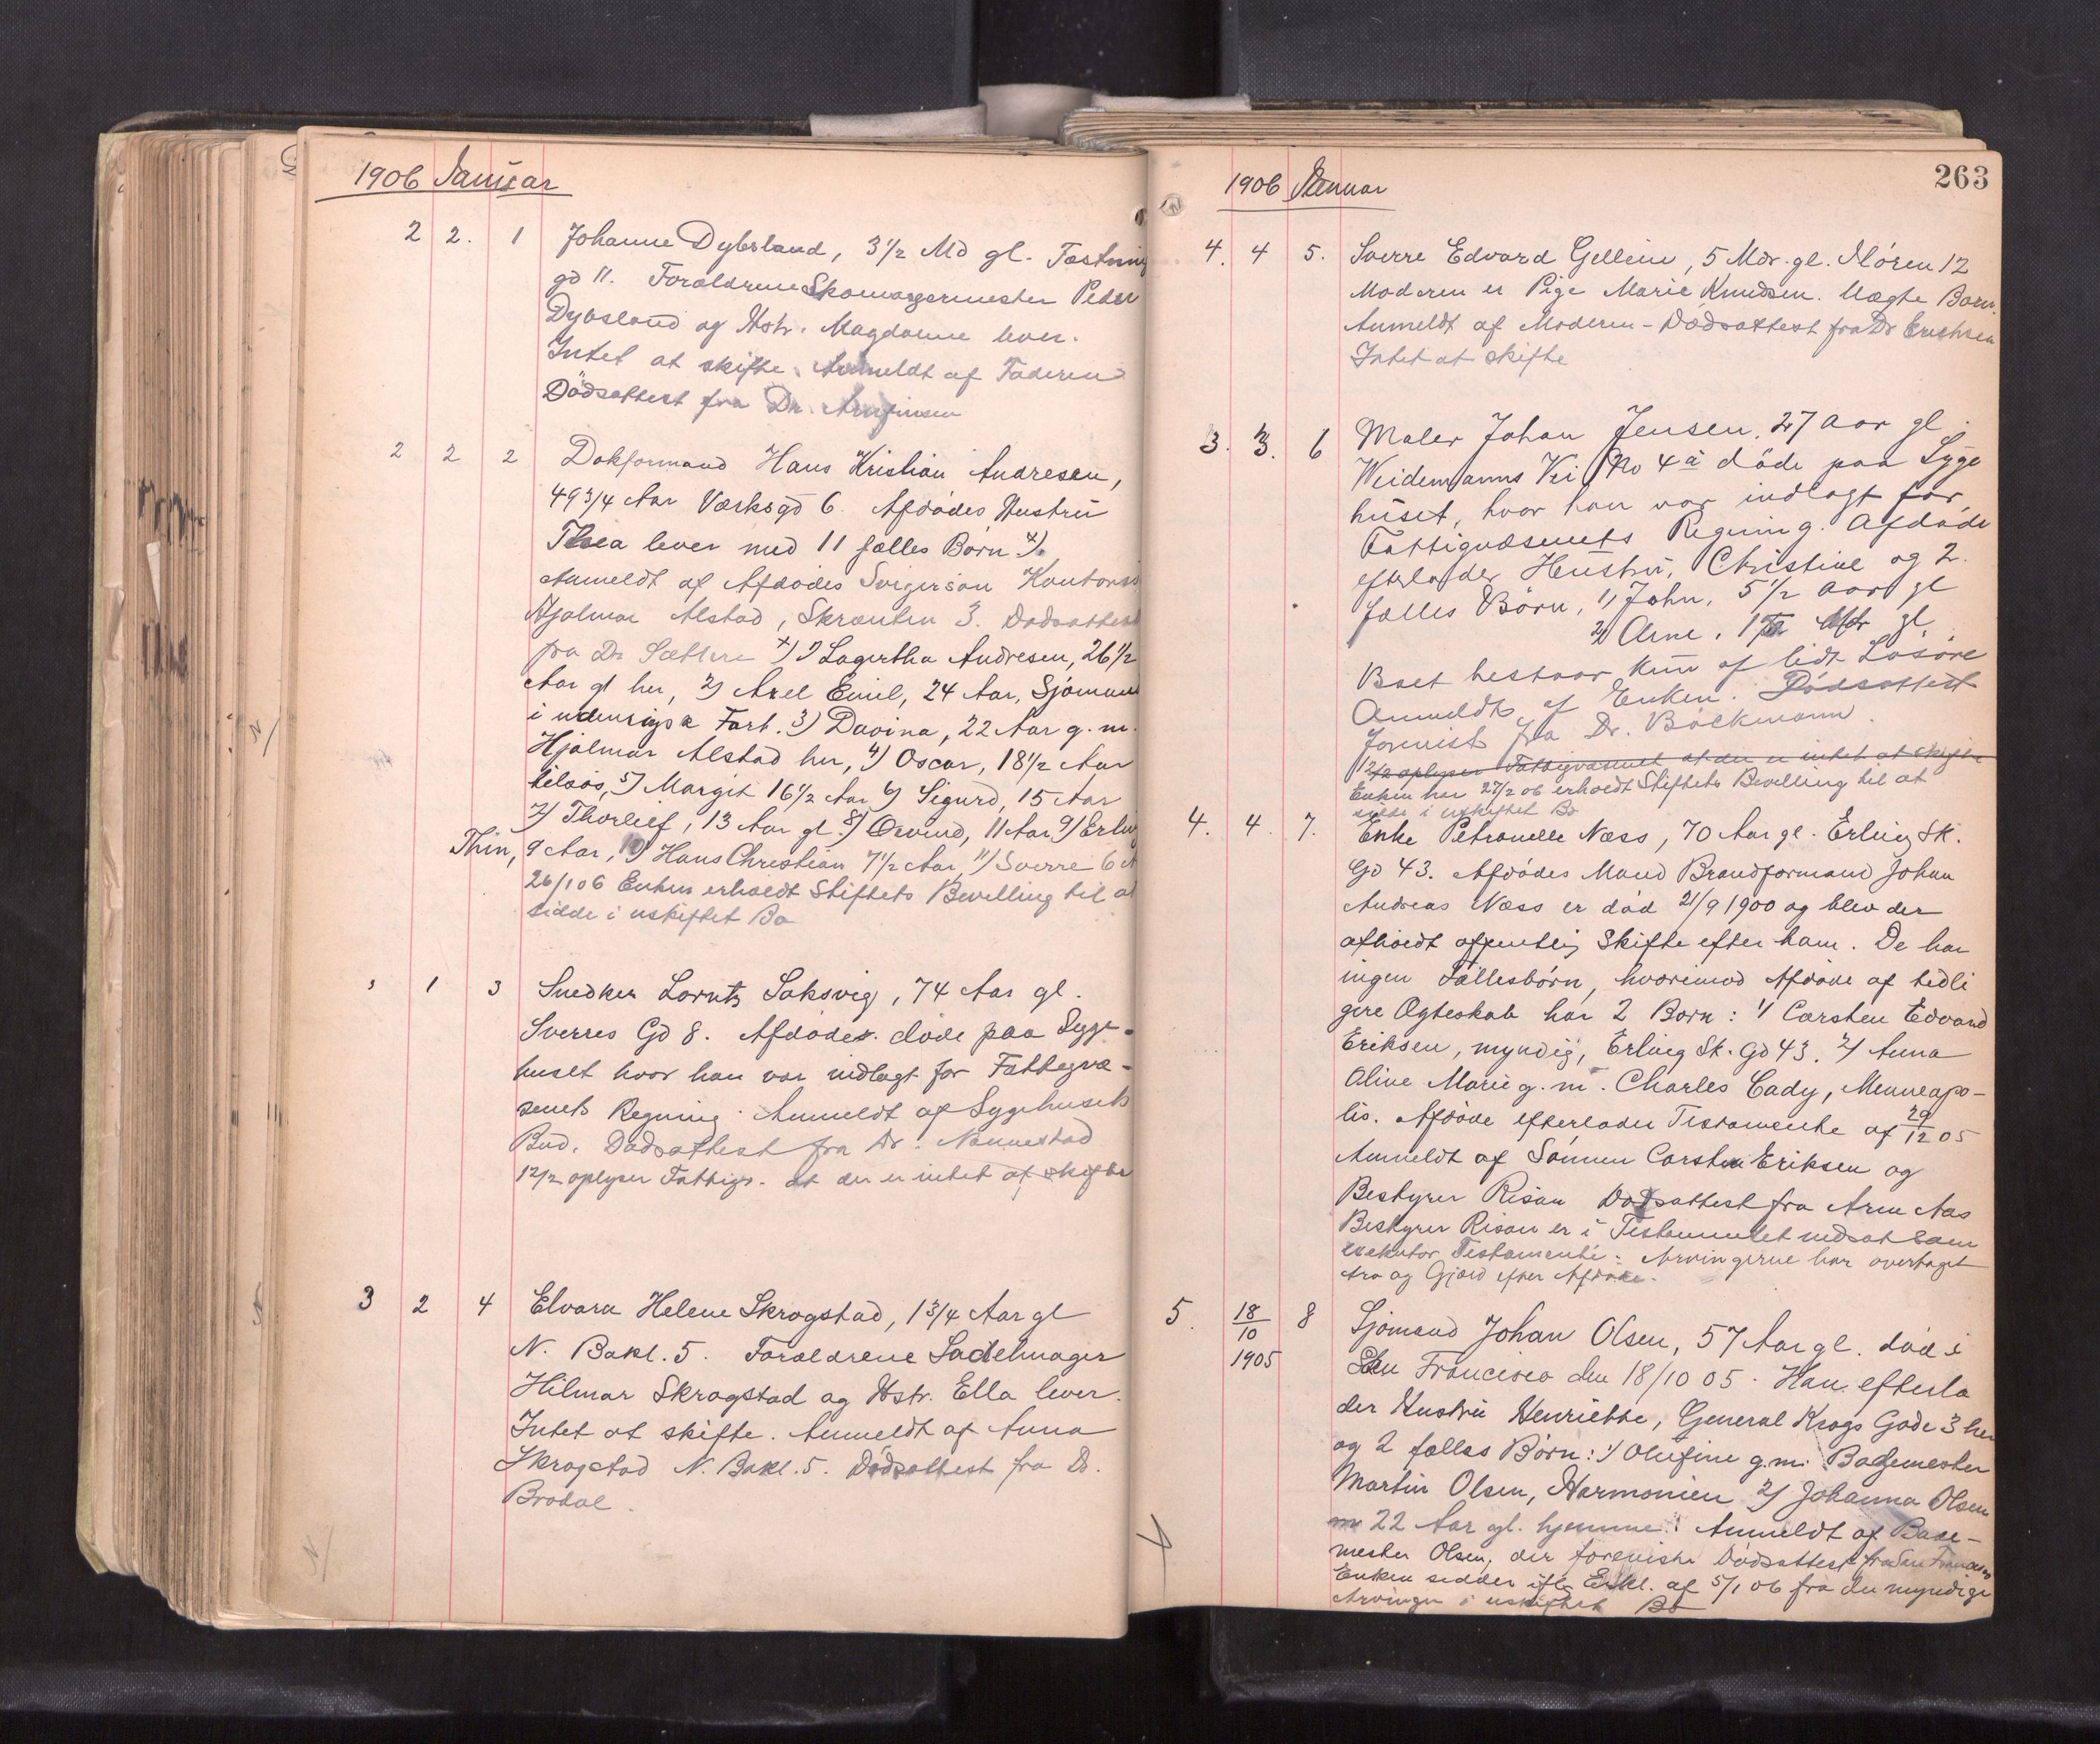 1906 Januar
2 2. 1 Johanne Dybsland, 3½ Md gl. Fæstning
gd 11. Forældrene Skomagermester Peder
Dybsland og Hstr. Magdalene lever.
Intet at skifte. Anmeldt af Faderen
Dödsattest fra Dr. Arnfinsen
2 2 2 Dokformand Hans Kristian Andresen,
49 3/4 Aar Værksgd 6. Afdødes Hustru
Thea lever med 11 fælles Børn x).
Anmeldt af Afdødes Svigersøn Kontorist
Hjalmar Alstad, Skrænten 3. Dødsattest
fra Dr Sættere x) 1) Lagertha Andresen, 26½
Aar gl her, 2) Axel Emil, 24 Aar, Sjømand
i udenrigsk Fart. 3) Davina, 22 Aar g. m.
Hjalmar Alstad her, 4) Oscar, 18½ Aar
tilsøs, 5) Margit 16½ Aar 6) Sigurd, 15 Aar
7) Thorleif, 13 Aar gl. 8) Øivind, 11 Aar 9) Erling
Thin, 9 Aar, 10) Hans Christian 7½ Aar, 11) Sverre 6 A
26/1 06 Enken erholdt Stiftets Bevilling til at
sidde i uskiftet Bo
3 1 3 Snedker Lorntz Saksvig, 74 Aar gl.
Sverres Gd 8. Afdødes døde paa Syge-
huset hvor han var indlagt for Fattigvæ-
senets Regning. Anmeldt af Sygehusets
Bud. Dødsattest fra Dr. Nannestad
12/2 oplyser Fattigv. at der er intet at skifte
3 2 4 Elvara Helene Skrogstad, 1 3/4 Aar gl
N. Bakl. 5. Forældrene Sadelmager
Hilmar Skrogstad og Hstr. Ella lever.
Intet at skifte. Anmeldt af Anna
Skrogstad N. Bakl. 5. Dödsattest fra Dr.
Brodal.
263
1906 Januar
4. 4 5. Sverre Edvard Gellein, 5 Mdr. gl. Iløren 12
Moderen er Pige Marie Knudsen. Uægte Barn.
Anmeldt af Moderen - Dødsattest fra Dr Erichsen
Intet at skifte
3. 3. 6 Maler Johan Jensen, 27 Aar gl.
Weidemanns Vei No 4a døde paa Syge
huset, hvor han var indlagt for
Fattigvæsenets Regning. Afdøde
efterlader Hustru, Christine og 2
fælles Børn, 1) John, 5½ Aar gl
2) Arne, 1 Mdr gl.
Boet bestaar kun af lidt Løsøre
Anmeldt af Enken. Dødsattest
forevist fra Dr. Bøckmann.
12/2 oplyser Fattigvæsenet at der er intet at skifte
Enken har 27/2 06 erholdt Stiftets Bevilling til at
sidde i uskiftet Bo
4. 4. 7. Enke Petronelle Næss, 70 Aar gl. Erling Sk.
Gd 43. Afdødes Mand Brandformand Johan
Andreas Næss er død 21/9 1900 og blev der
afholdt offentlig Skifte efter ham. De har
ingen Fællesbørn, hvorimod Afdøde af tidli
gere Ægteskab har 2 Børn: 1) Carsten Edvard
Eriksen, myndig, Erling Sk. Gd 43. 2) Anna
Oline Marie g. m. Charles Cady, Menneapo-
lis. Afdøde efterlader Testamente af 29/12 05
Anmeldt af Sønnen Carsten Eriksen og
Bestyrer Risan Dødsattest fra Arne Aas
Bestyrer Risan er i Testamentet indsat som
executor Testamenti. Arvingerne har overtaget
Arv og Gjæld efter Afdøde.
5. 18/10 1905 8 Sjömand Johan Olsen, 57 Aar gl. død i
San Francisco den 18/10 05. Han efterla
der Hustru Henriette, General Krogs Gade 3 her
og 2 fælles Børn: 1) Olufine g. m. Bagemester
Martin Olsen, Harmonien 2) Johanna Olsen
22 Aar gl. hjemme. Anmeldt af Bage-
mester Olsen, der foreviste Dødsattest fra San Francisco
Enken sidder iflg Erkl. af 5/1 06 fra de myndige
Arvinger i uskiftet Bo